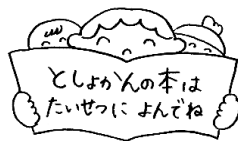 としょかんの本は
たいせつに よんでね